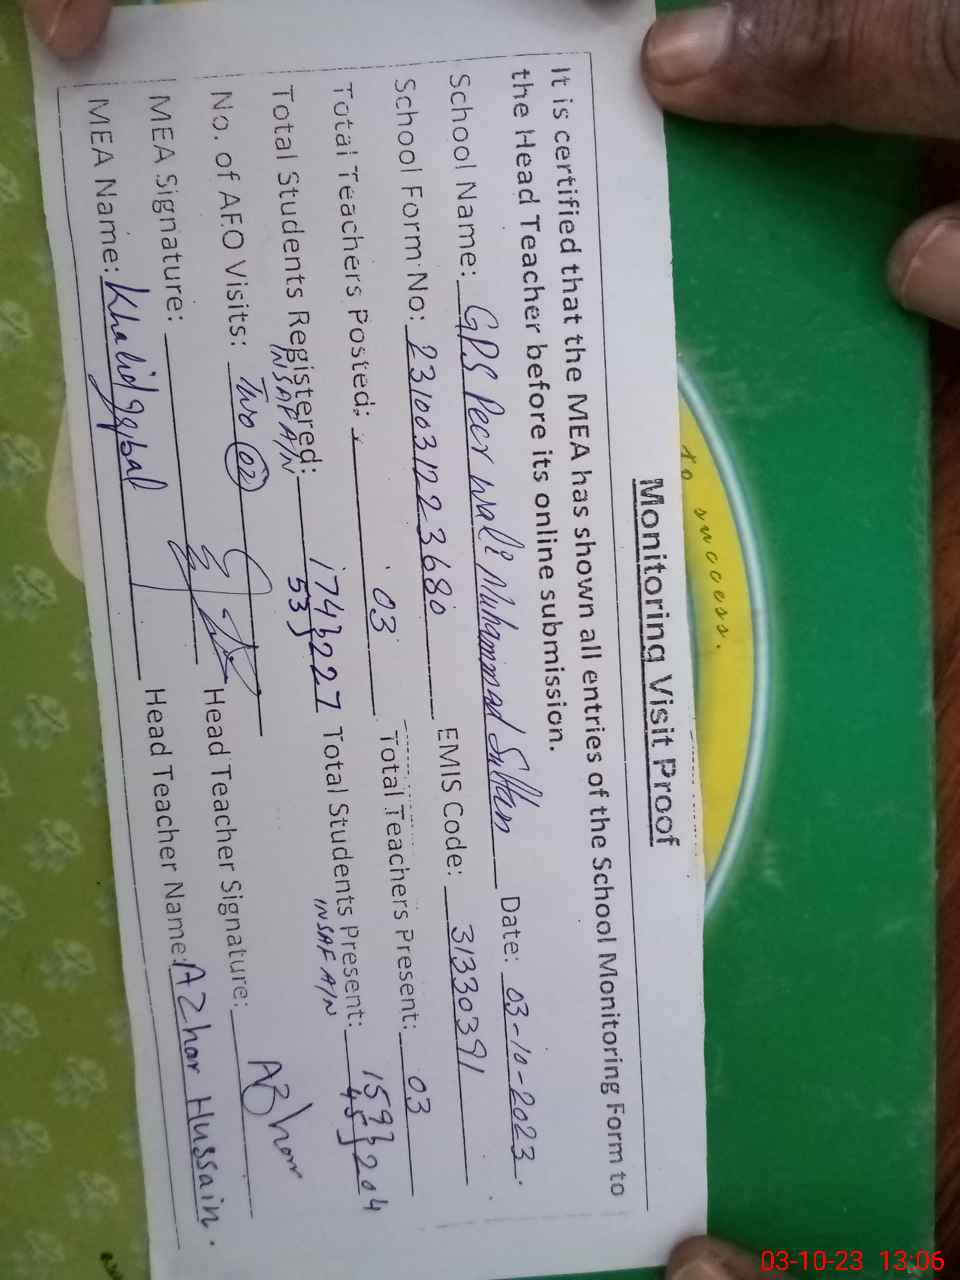 to success.
Monitoring Visit Proof
It is certified that the MEA has shown all entries of the School Monitoring Form to
the Head Teacher before its online submission.
School Name: GPS Peer wali Muhammad Sultan Date: 03-10-2023.
School Form No: 2310031223680 EMIS Code: 31330391
Total Teachers Posted: 03 Total Teachers Present: 03
Total Students Registered: 174 } 227 Total Students Present: 159 } 204
INSAF A/N 53 INSAF A/N 45
No. of AEO Visits: Two (02)
MEA Signature: Head Teacher Signature: Azhar
MEA Name: Khalid Iqbal Head Teacher Name: AZhar Hussain.
03-10-23 13:06